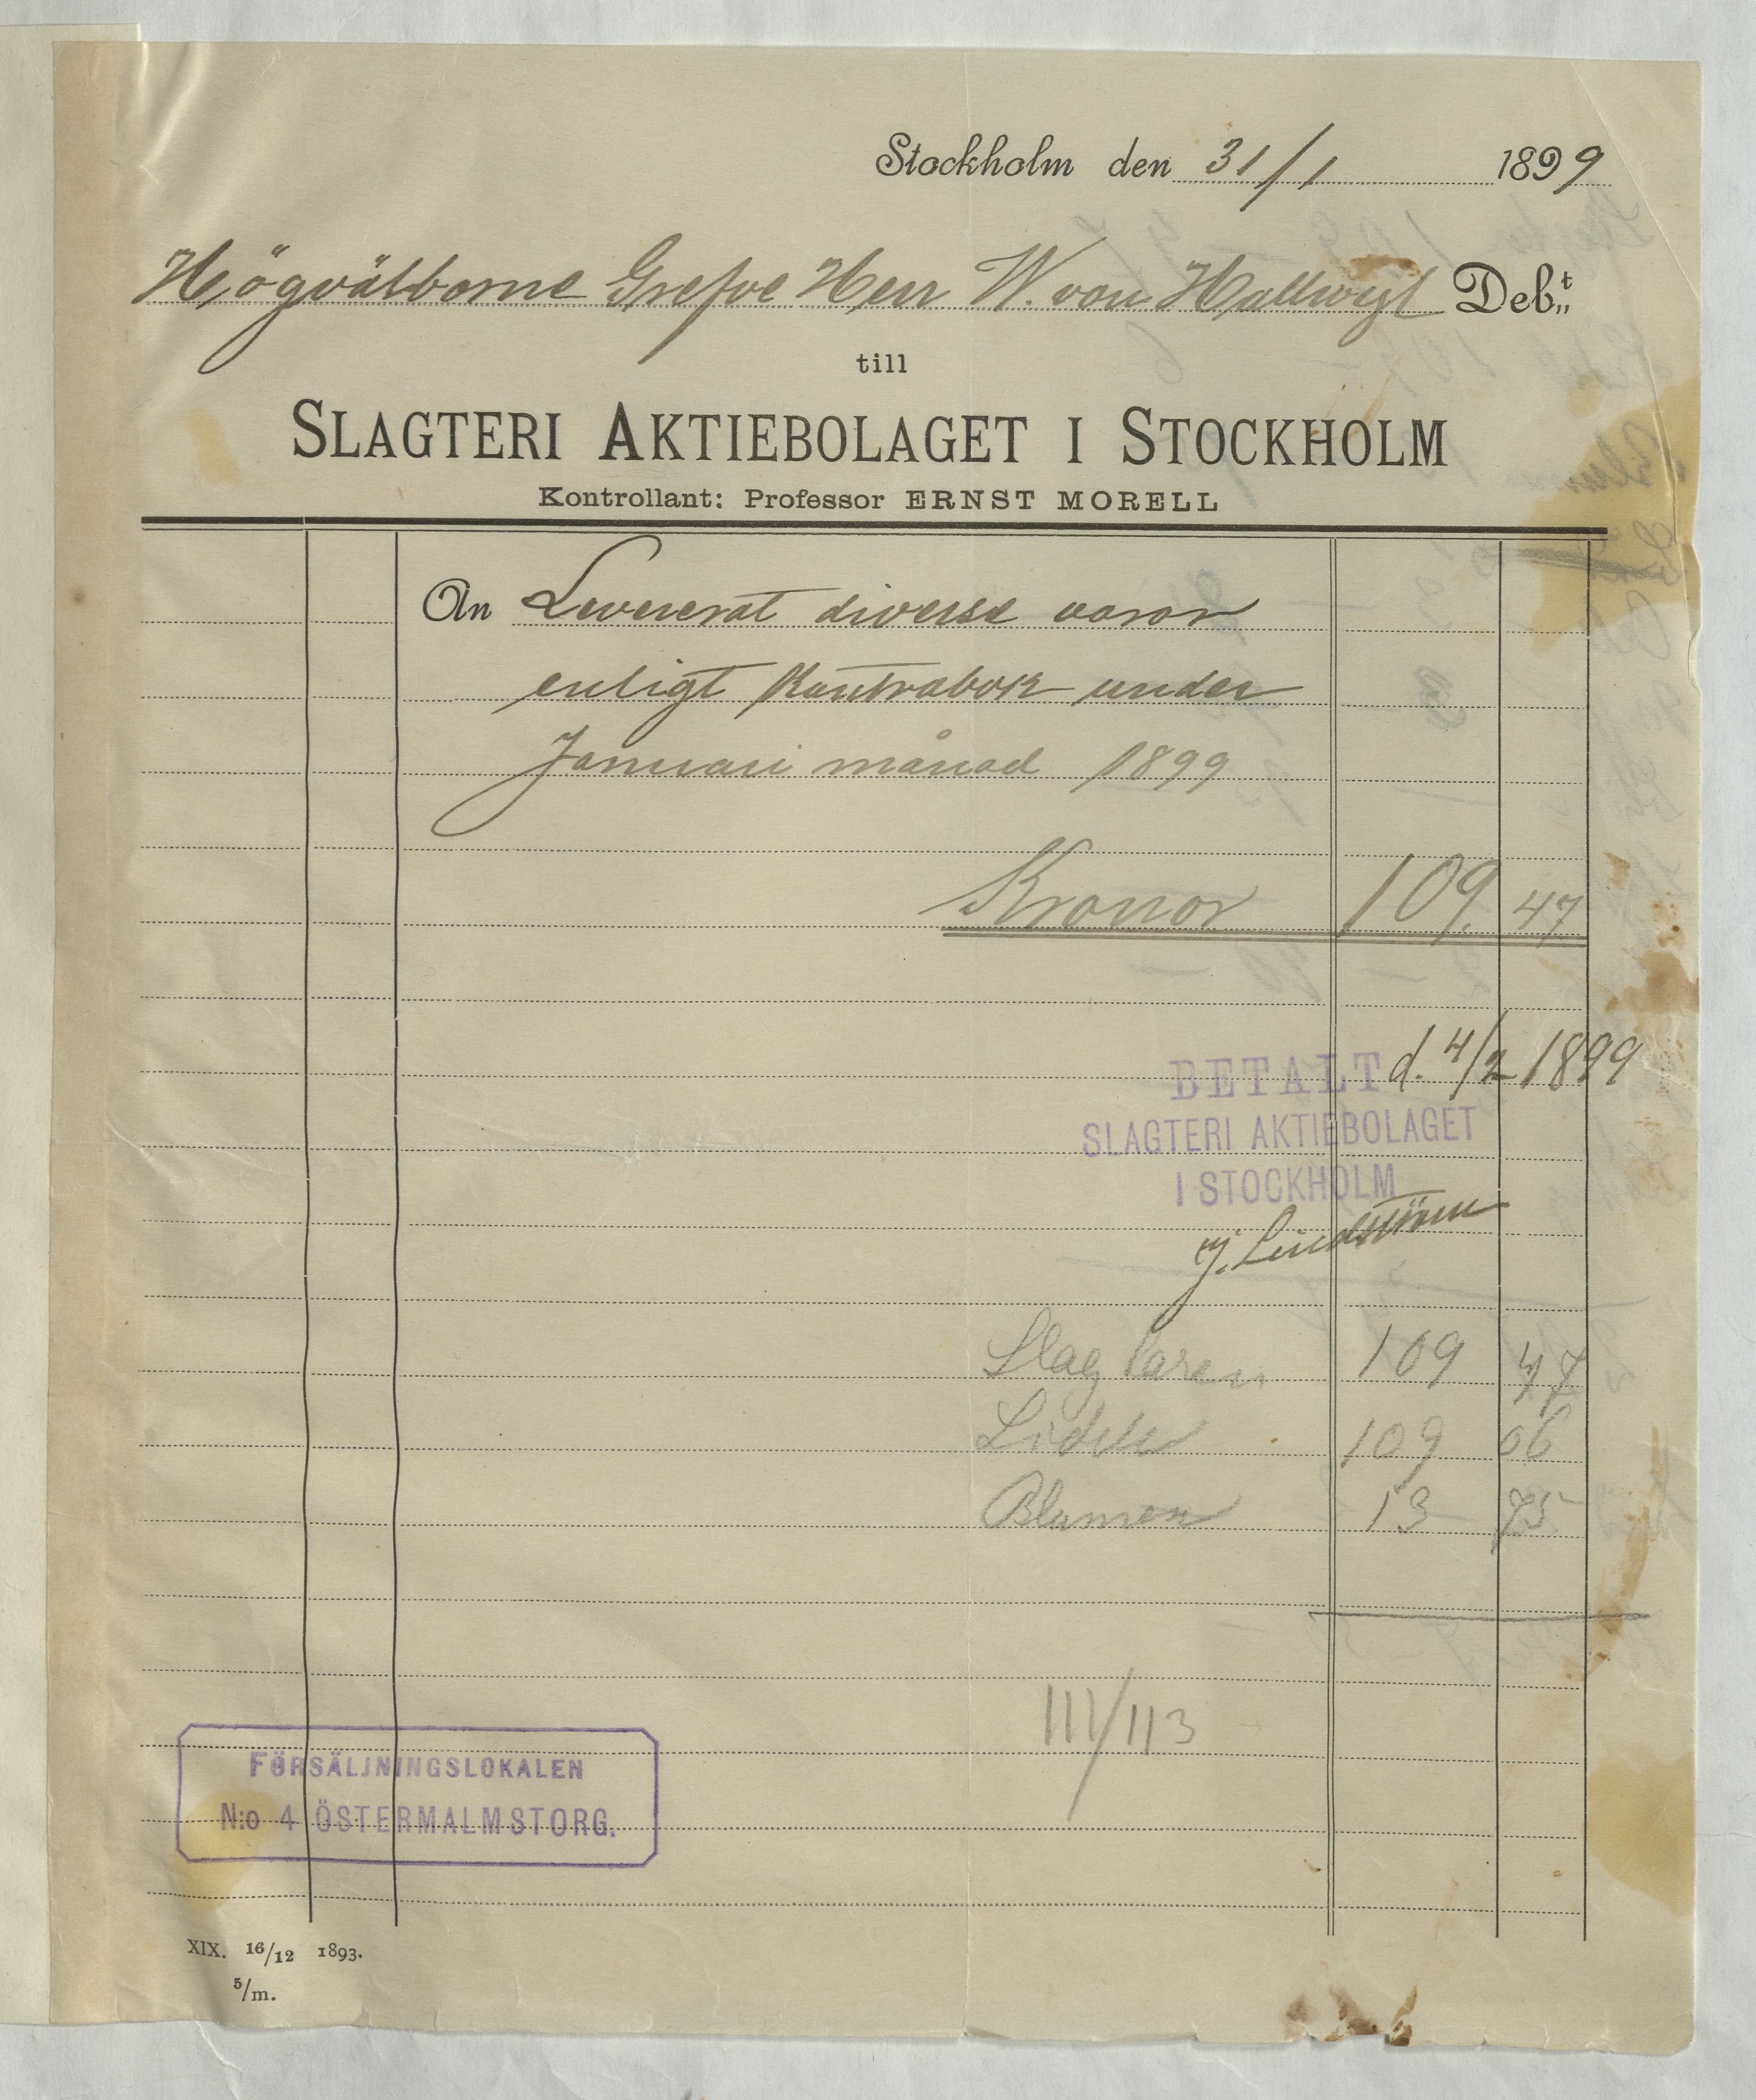 Stockholm den 31/1 1899
Högvälborne Grefve Herr W. von Hallwyl Deb:t
till
SLAGTERI AKTIEBOLAGET I STOCKHOLM
Kontrollant: Professor ERNST MORELL
An Levererat diverse varor
enligt Kontrabok under
Januari månad 1899
Kronor 109. 47
BETALT d. 4/2 1899
SLAGTERI AKTIEBOLAGET
I STOCKHOLM
Lindström
Slagtaren 109 47
109 06
13 75
111/113
FÖRSÄLJNINGSLOKALEN
N:o 4 ÖSTERMALMSTORG.
XIX. 16/12 1893.
5/m.